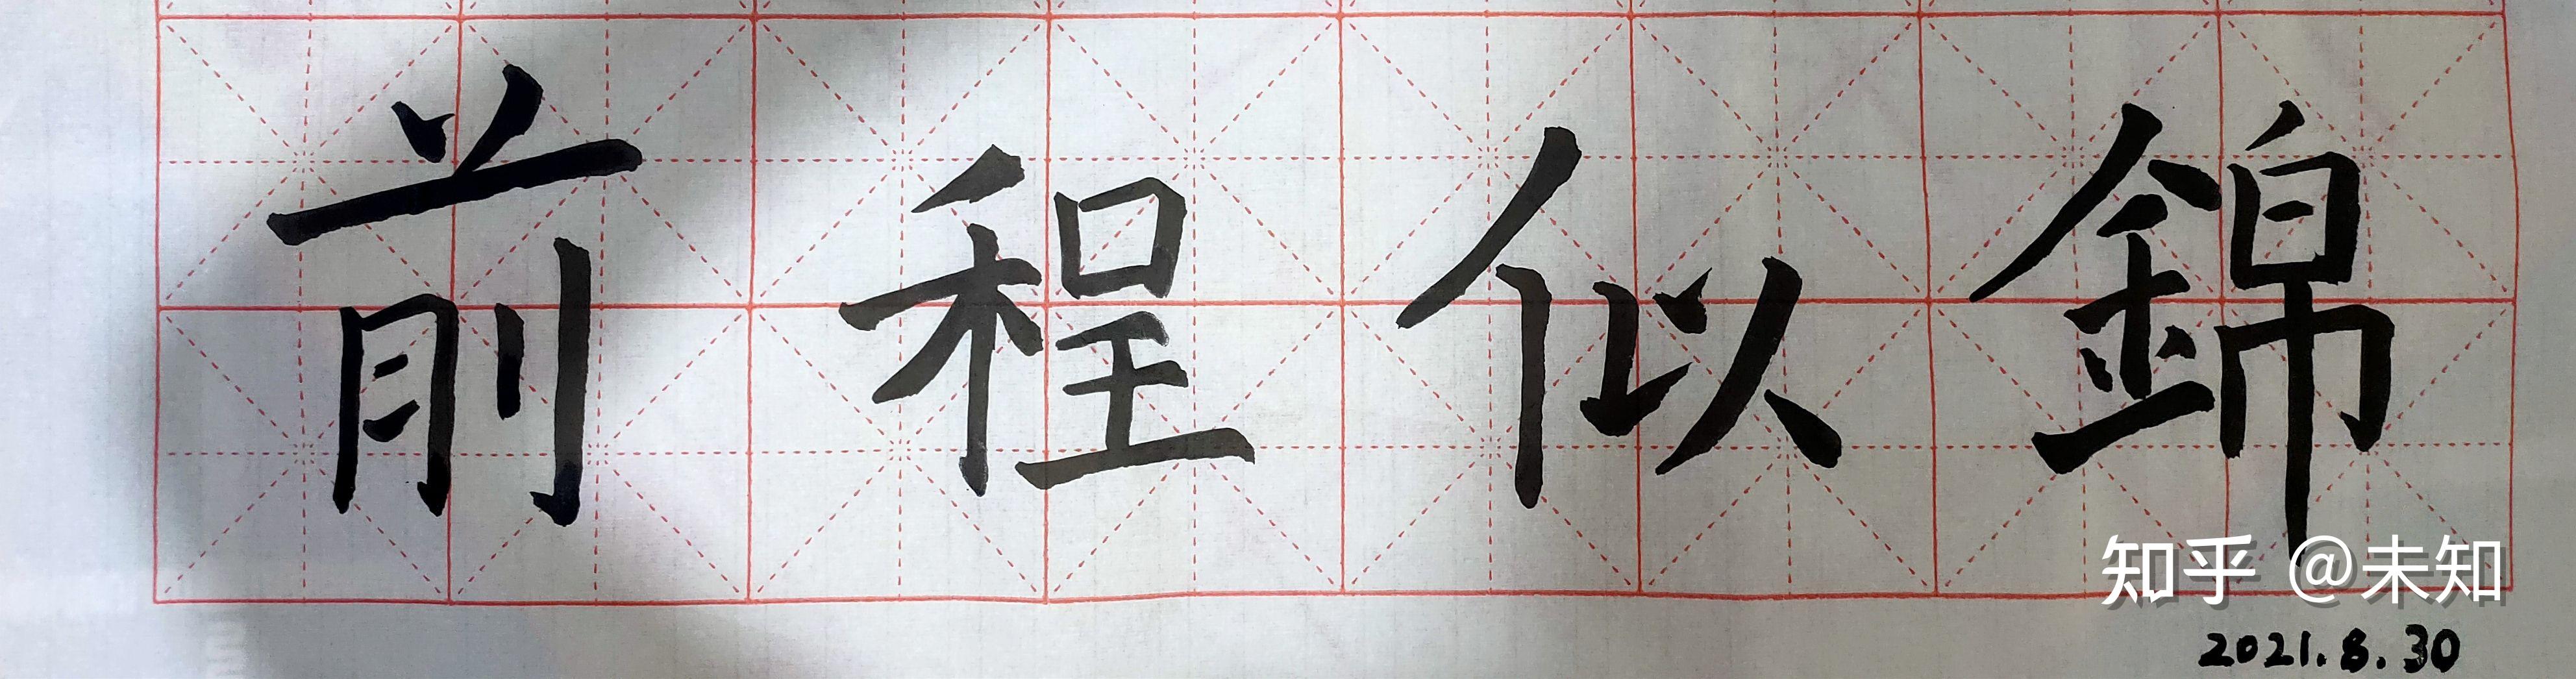 前程似錦
知乎 @未知
2021.8.30